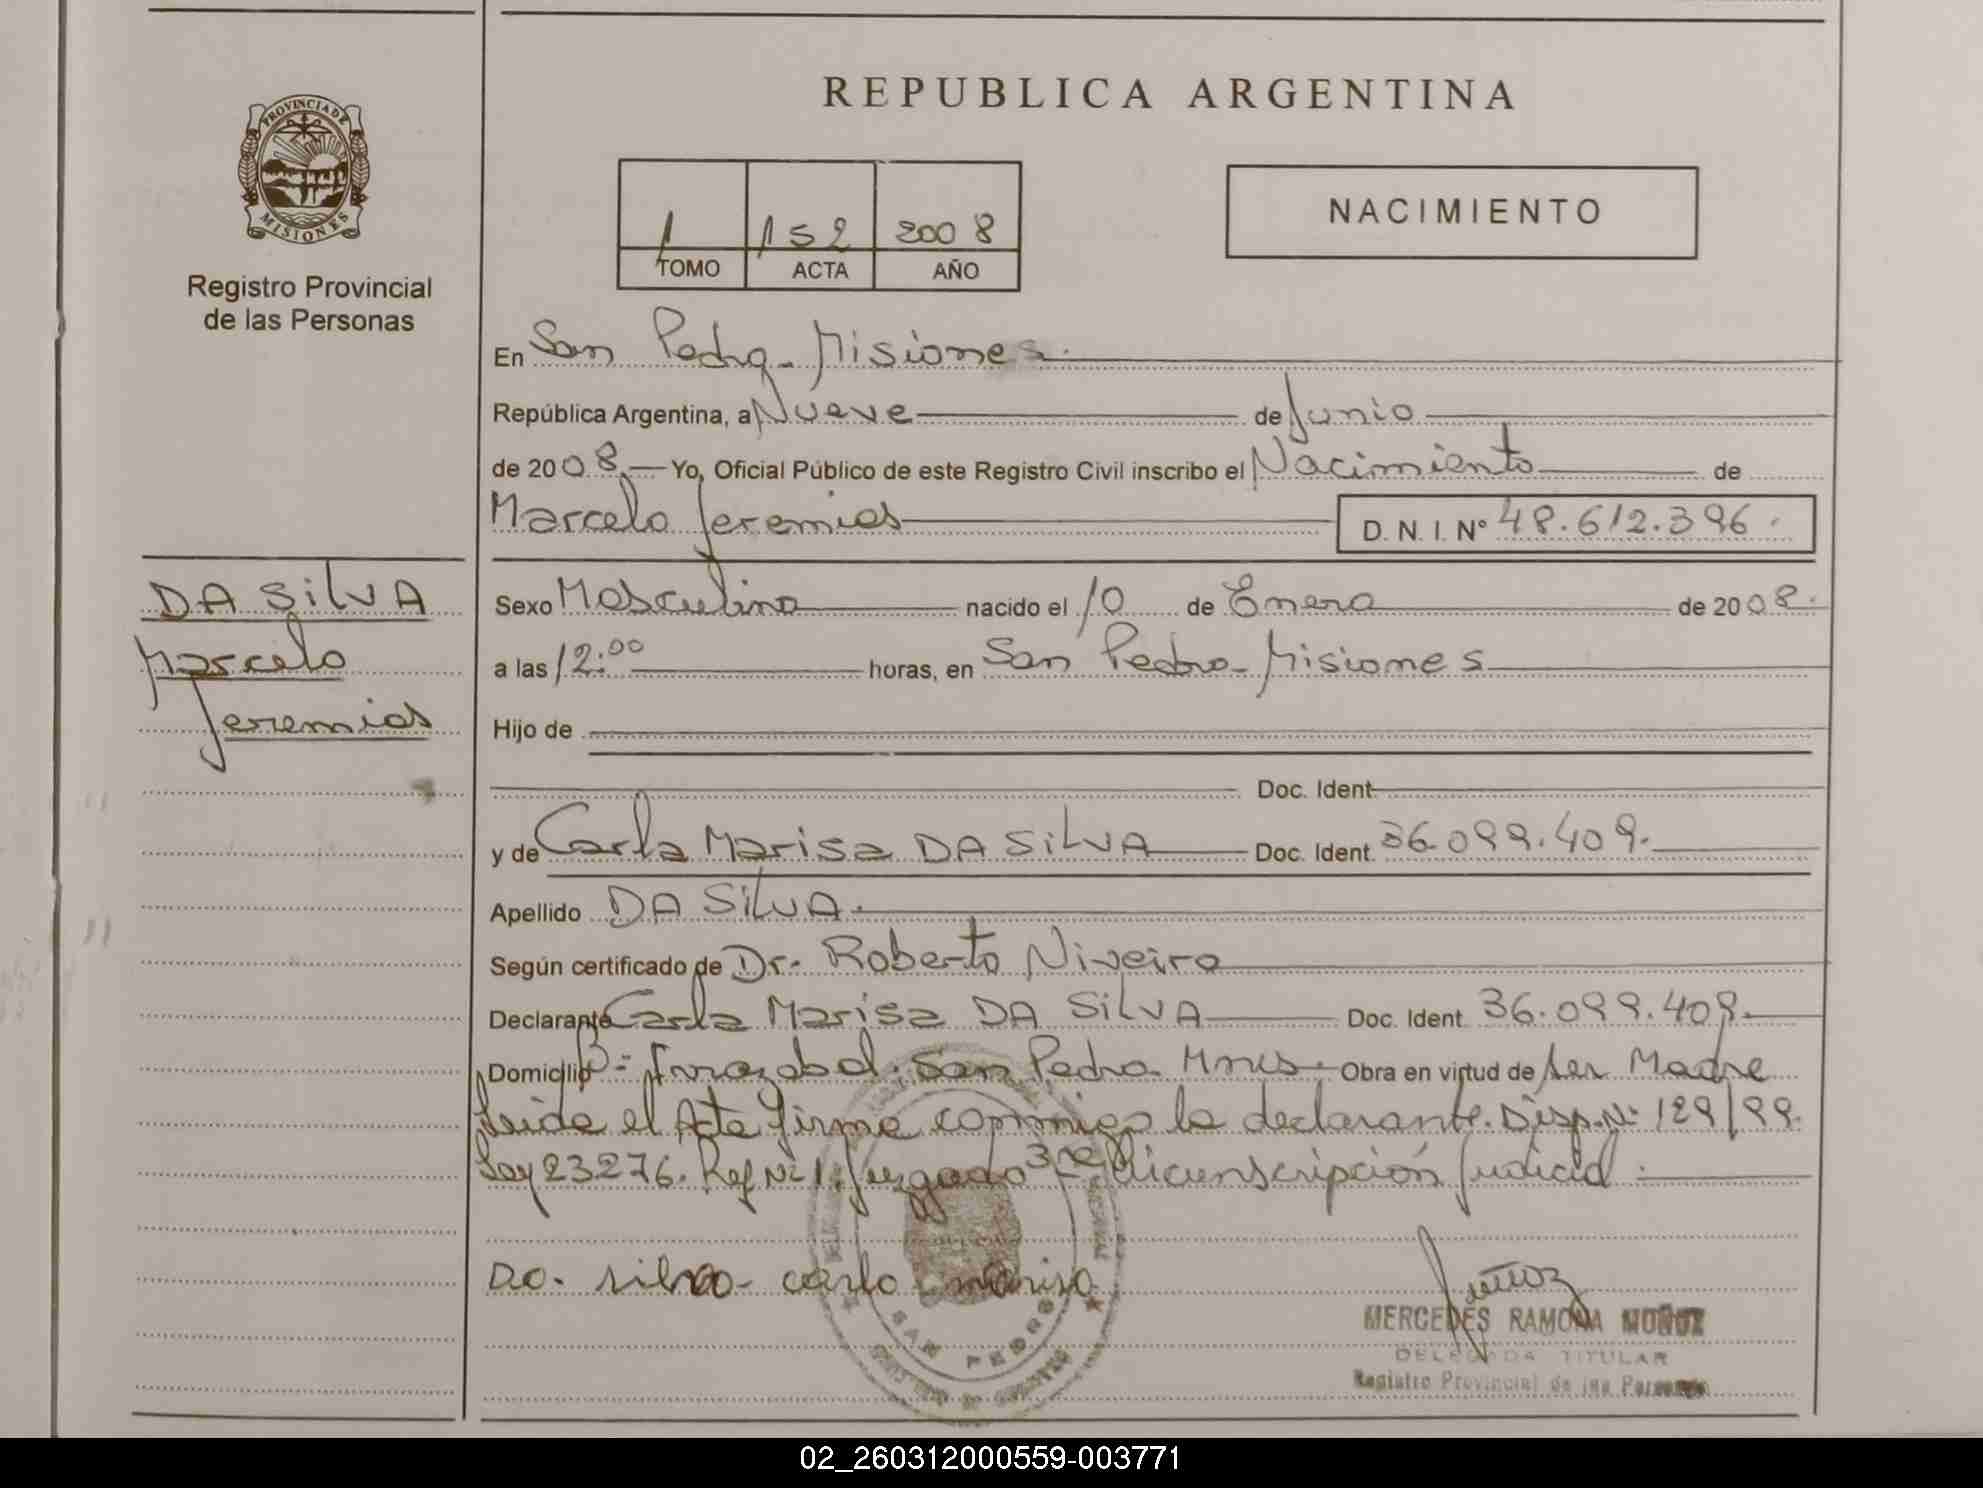 REPUBLICA ARGENTINA
PROVINCIA DE MISIONES
Registro Provincial
de las Personas
1 152 2008
TOMO ACTA AÑO
NACIMIENTO
En San Pedro - Misiones.
República Argentina, a Nueve de Junio
de 2008.- Yo, Oficial Público de este Registro Civil inscribo el Nacimiento de
Marcelo Jeremias D. N. I. Nº 48.612.396.
DA SilVA
Marcelo
Jeremias
Sexo Masculino nacido el 10 de Enero de 2008.
a las 12:00 horas, en San Pedro - Misiones
Hijo de
Doc. Ident
y de Carla Marisa DA SilVA Doc. Ident. 36.099.409.
Apellido DA SilVA.
Según certificado de Dr. Roberto Niveiro
Declarante Carla Marisa DA SilVA Doc. Ident. 36.099.409.
Domicilio Bº Irrazabal. San Pedro Mnes. Obra en virtud de ser Madre
Leida el Acta firma conmigo la declarante. Disp. Nº 129/99.
Ley 23276. Ref Nº 1. Juzgado 3ra Circunscripción Judicial.
Da. silva carla marisa
SAN PEDRO
Muñoz
MERCEDES RAMONA MUÑOZ
DELEGADA TITULAR
Registro Provincial de las Personas
02_260312000559-003771